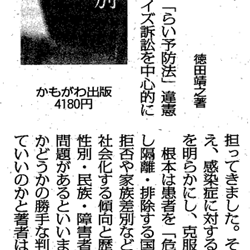 徳田靖之著
「らい予防法」違憲
イズ訴訟を中心的に
別
かもがわ出版
4180円
担ってきました。
え、感染症に対する
を明らかにし、克服
根本は患者を「危
し隔離・排除する国
拒否や家族差別など
社会化する傾向と歴
性別・民族・障害者
問題があるといいま
かどうかの勝手な判
ていいのかと著者は